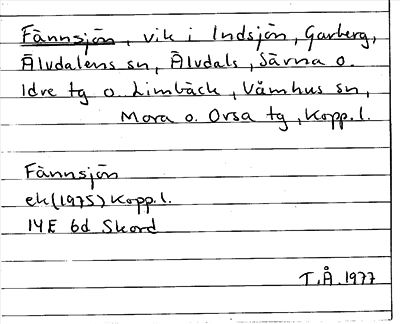 Fännsjön, vik i Indsjön, Garberg,
Älvdalens sn, Älvdals, Särna o.
Idre tg o. Limbäck, Våmhus sn,
Mora o. Orsa tg, Kopp.l.
Fännsjön
ek(1975) Kopp.l.
14E 6d Skord
T.Å. 1977